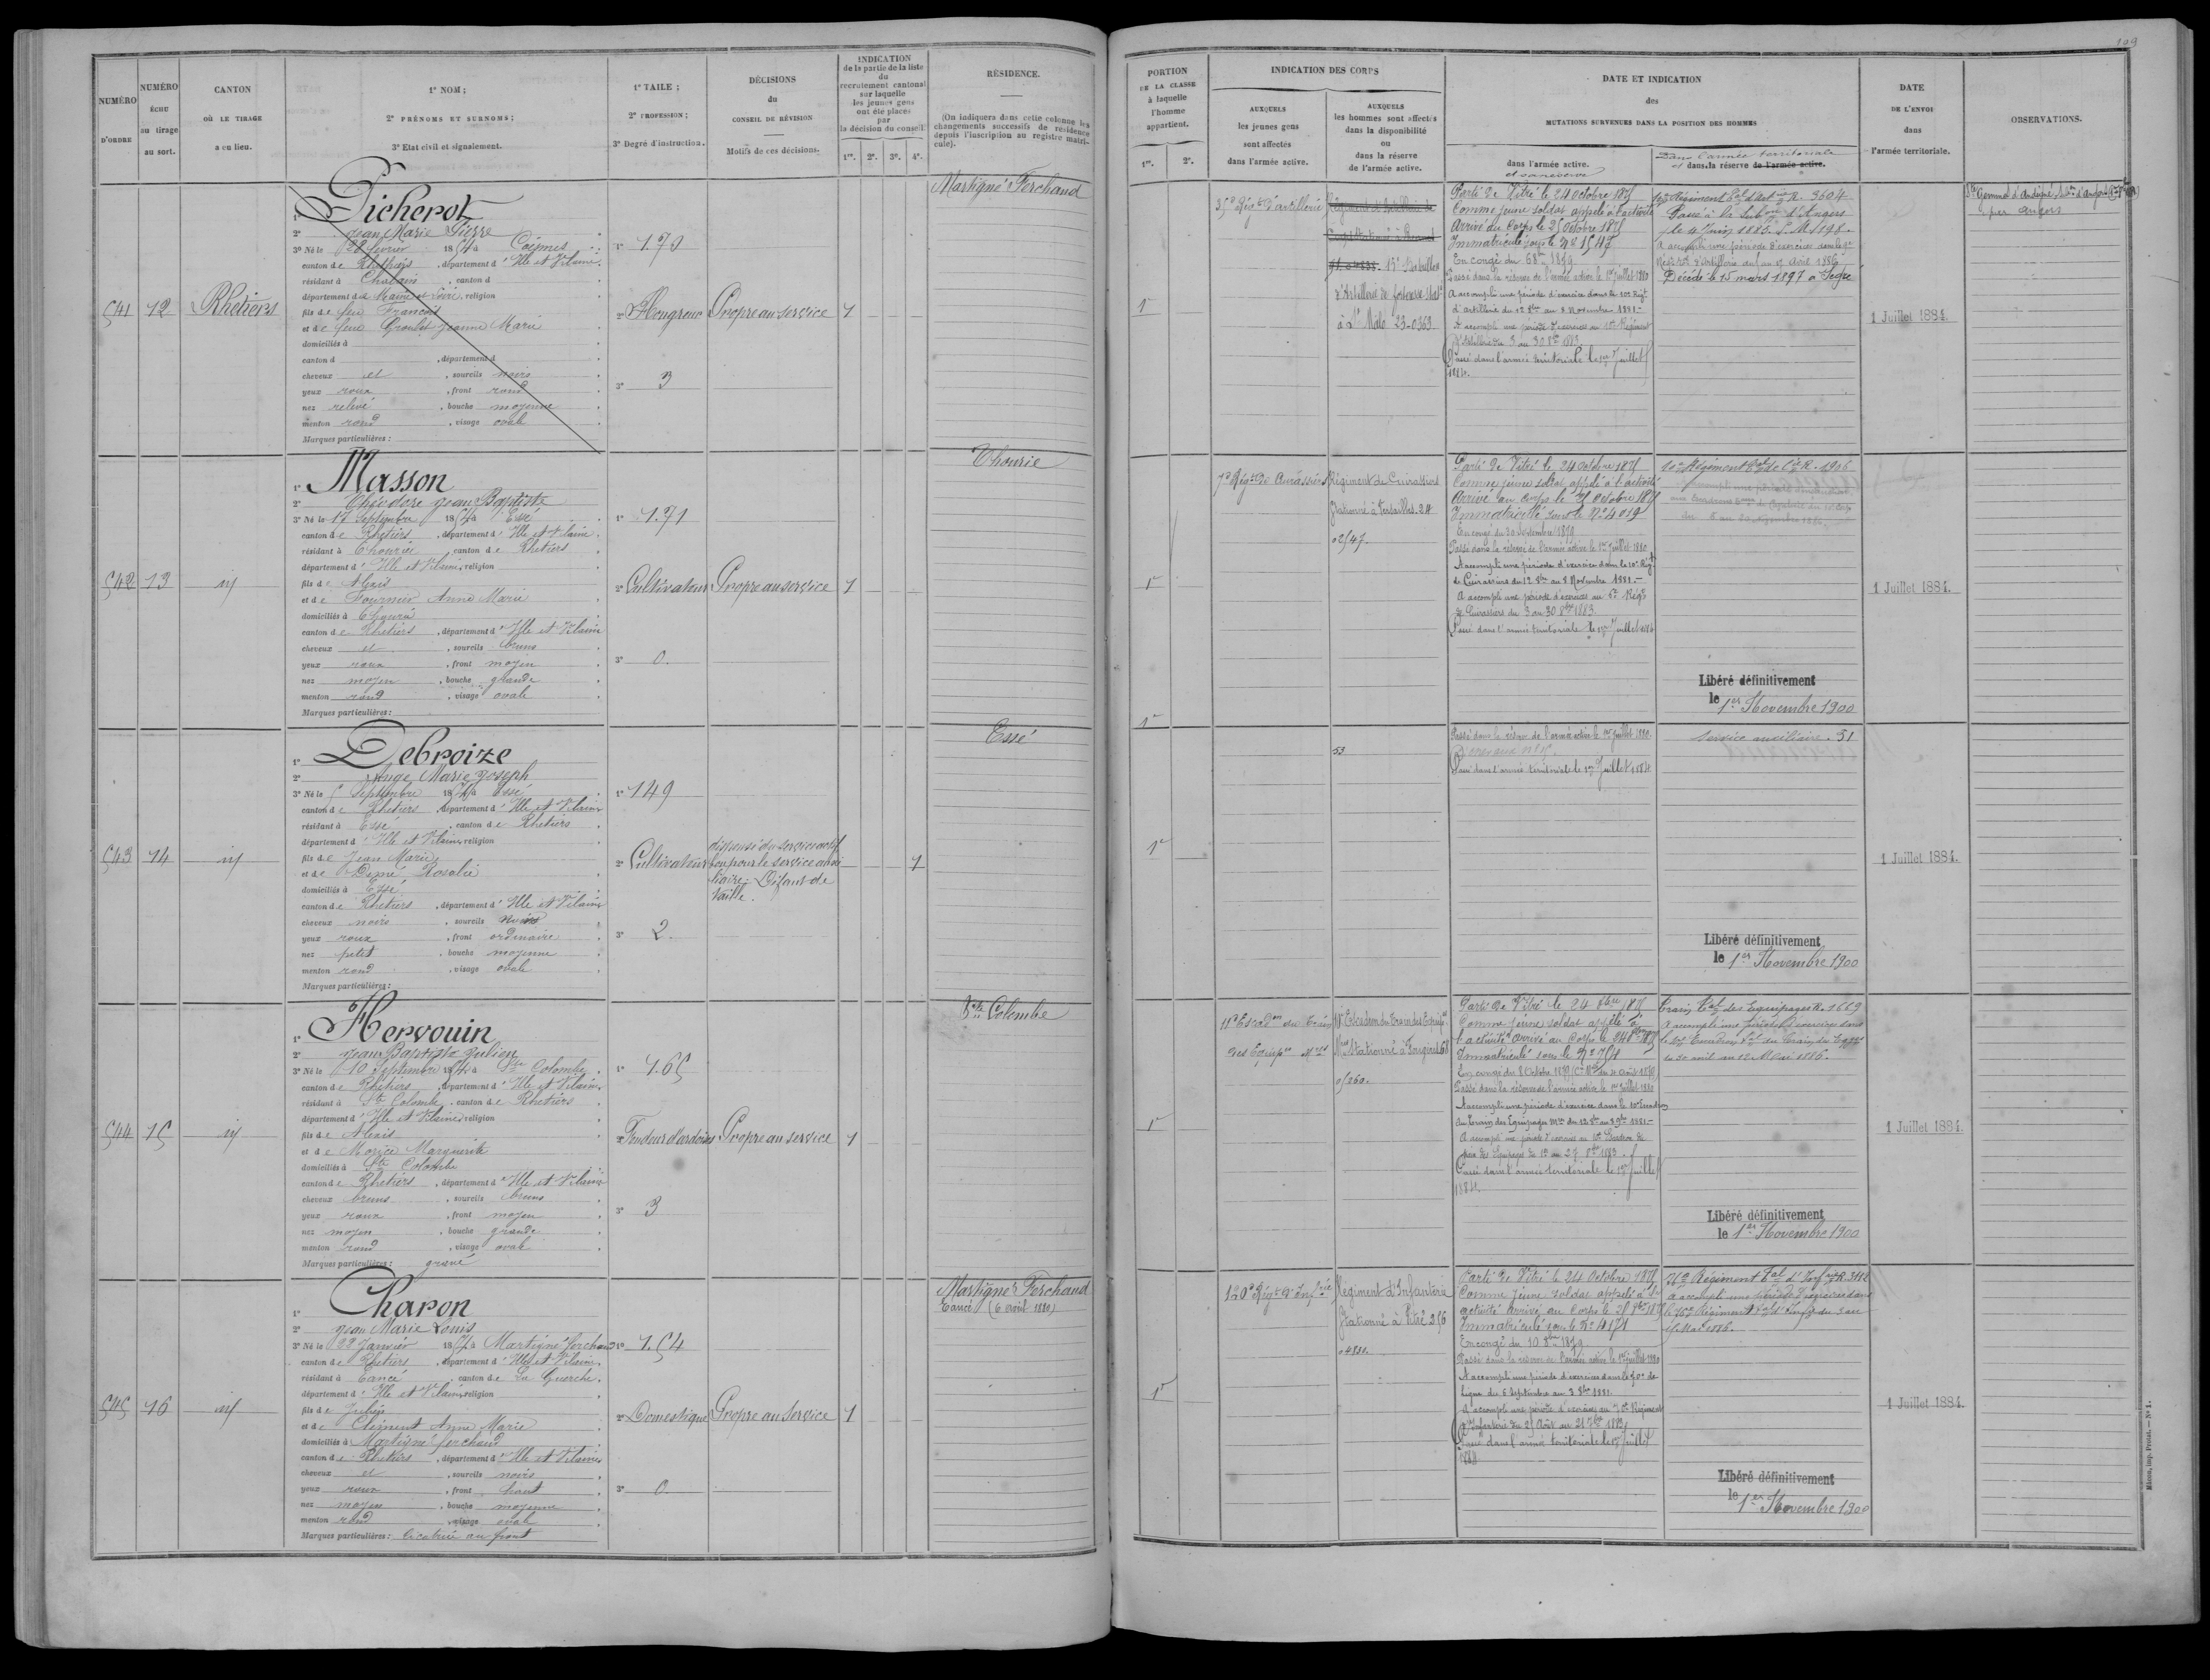 109
NUMÉRO
D'ORDRE
NUMÉRO
ÉCHU
au tirage
au sort.
CANTON
OÙ LE TIRAGE
a eu lieu.
1° NOM ;
2° PRÉNOMS ET SURNOMS ;
3° Etat civil et signalement.
1° TAILE ;
2° PROFESSION ;
3° Degré d'instruction.
DÉCISIONS
du
CONSEIL DE RÉVISION
Motifs de ces décisions.
INDICATION
de la partie de la liste
du
recrutement cantonal
sur laquelle
les jeunes gens
ont été placés
par
la décision du conseil
1re. 2e. 3e. 4e.
RÉSIDENCE.
(On indiquera dans cette colonne les
changements successifs de résidence
depuis l'inscription au registre matri-
cule).
PORTION
DE LA CLASSE
à laquelle
l'homme
appartient.
1re. 2e.
INDICATION DES CORPS
AUXQUELS
les jeunes gens
sont affectés
dans l'armée active.
AUXQUELS
les hommes sont affectés
dans la disponibilité
ou
dans la réserve
de l'armée active.
DATE ET INDICATION
des
MUTATIONS SURVENUES DANS LA POSITION DES HOMMES
dans l'armée active.
et sa réserve
Dans l'armée territoriale
et dans la réserve de l'armée active.
DATE
DE L'ENVOI
dans
l'armée territoriale.
OBSERVATIONS.
541 12 Rhetiers
1° Picherot
2° Jean Marie Pierre
3° Né le 22 février 1854 à Coësmes
canton de Rhetiers, département d'Ille et Vilaine
résidant à , canton d
département de Maine et Loire, religion
fils de feu François
et de feue Jeanne Marie
domiciliés à
canton d , département d
cheveux et , sourcils noirs
yeux roux , front rond
nez relevé , bouche moyenne
menton rond , visage ovale
Marques particulières :
1° 1.70
2° Hongreur
3° 3
Propre au service 1
Martigné Ferchaud
1e
35e Régt d'artillerie
15e Bataillon
d'Artillerie de forteresse
à St Malo 23-0363
Parti de Vitré le 24 octobre 1875
Comme jeune soldat appelé à l'activité
Arrivé au Corps le 25 octobre 1875
Immatriculé sous le N° 1547
Passé dans la réserve de l'armée active le 1er Juillet 1880
A accompli une période d'exercice dans le 10e Régt
d'artillerie du 12 8bre au 8 Novembre 1881.
A accompli une période d'exercices au 10e Régiment
d'artillerie du 3 au 30 8bre 1883
Passé dans l'armée territoriale le 1er Juillet
1884.
Passé à la d'Angers
le 4 Juin 1885.
Décédé le 15 mars 1897 à Segré
1 Juillet 1884.
par Angers
542 13 id
1° Masson
2° Théodore Jean Baptiste
3° Né le 17 Septembre 1854 à Essé
canton de Rhetiers, département d'Ille et Vilaine
résidant à Thourie, canton de Rhetiers
département d'Ille et Vilaine, religion
fils de Alexis
et de Fournier Anne Marie
domiciliés à Thourie
canton de Rhetiers, département d'Ille et Vilaine
cheveux et , sourcils bruns
yeux roux , front moyen
nez moyen , bouche grande
menton rond , visage ovale
Marques particulières :
1° 1.71
2° Cultivateur
3° 0.
Propre au service 1
Thourie
1e
7e Régt de Cuirassiers
Régiment de Cuirassiers
Stationné à Versailles. 24
02547.
Parti de Vitré le 24 octobre 1875
Comme jeune soldat appelé à l'activité
Arrivé au corps le 25 octobre 1875
Immatriculé sous le N° 4019
En congé du 30 Septembre 1879
Passé dans la réserve de l'armée active le 1er Juillet 1880
A accompli une période d'exercice dans le 10e Régt
de Cuirassiers du 12 8bre au 8 Novembre 1881.
A accompli une période d'exercices au 6e Régt
de Cuirassiers du 3 au 30 8bre 1883.
Passé dans l'armée territoriale le 1er Juillet 1884
Libéré définitivement
le 1er Novembre 1900
1 Juillet 1884.
543 14 id
1° Debroize
2° Ange Marie Joseph
3° Né le 5 Septembre 1854 à Essé
canton de Rhetiers, département d'Ille et Vilaine
résidant à Essé, canton de Rhetiers
département d'Ille et Vilaine, religion
fils de Jean Marie
et de Rosalie
domiciliés à Essé
canton de Rhetiers, département d'Ille et Vilaine
cheveux noirs , sourcils noirs
yeux roux , front ordinaire
nez petit , bouche moyenne
menton rond , visage ovale
Marques particulières :
1° 149
2° Cultivateur
3° 2.
dispensé du service actif
bon pour le service auxi
liaire. Défaut de
taille.
1
Essé
1e
1e
53
Passé dans la réserve de l'armée active le 1er Juillet 1880.
Passé dans l'armée territoriale le 1er Juillet 1884
Service auxiliaire. 51
Libéré définitivement
le 1er Novembre 1900
1 Juillet 1884.
544 15 id
1° Hervouin
2° Jean Baptiste Julien
3° Né le 10 Septembre 1854 à Ste Colombe
canton de Rhetiers, département d'Ille et Vilaine
résidant à Ste Colombe, canton de Rhetiers
département d'Ille et Vilaine, religion
fils de Alexis
et de Morice Marguerite
domiciliés à Ste Colombe
canton de Rhetiers, département d'Ille et Vilaine
cheveux bruns , sourcils bruns
yeux roux , front moyen
nez moyen , bouche grande
menton rond , visage ovale
Marques particulières : gravé
1° 1.65
2° Fendeur d'ardoises
3° 3
Propre au service 1
Ste Colombe
1e
11e Escadon du Train
des Equipes Mres
Stationné à Fougères 68
05260.
Parti de Vitré le 24 8bre 1875
Comme jeune soldat appelé à
l'activité arrivé au Corps le
Immatriculé sous le N° 754
Passé dans la réserve de l'armée active le 1er Juillet 1880
A accompli une période d'exercice dans le 10e Escadron
du train des Equipages Mres du 12 8bre au 8 9bre 1881.
Passé dans l'armée territoriale le 1er Juillet
1884.
Train tal des Equipages R. 1669
A accompli une période d'exercices dans
du 30 avril au 12 Mai 1886.
Libéré définitivement
le 1er Novembre 1900
1 Juillet 1884.
545 16 id
1° Charon
2° Jean Marie Louis
3° Né le 22 Janvier 1854 à Martigné Ferchaud
canton de Rhetiers, département d'Ille et Vilaine
résidant à Tancé, canton de La Guerche
département d'Ille et Vilaine, religion
fils de Julien
et de Clément Anne Marie
domiciliés à Martigné ferchaud
canton de Rhetiers, département d'Ille et Vilaine
cheveux et , sourcils noirs
yeux roux , front haut
nez moyen , bouche moyenne
menton rond , visage ovale
Marques particulières : Cicatrice au front
1° 1.54
2° Domestique
3° 0.
Propre au service 1
Martigné Ferchaud
(6 août 1880)
1e
120e Régt d'Infrie
Régiment d'Infanterie
Stationné à Vitré 256
04830.
Parti de Vitré le 24 Octobre 1875
Comme jeune soldat appelé à l'
activité arrivé au Corps le
Immatriculé sous le N° 4171
En congé du 10 8bre 1879
Passé dans la réserve de l'armée active le 1er Juillet 1880
A accompli une période d'exercices dans le 70e de
ligne du 6 Septembre au 3 8bre 1881.
A accompli une période d'exercices au 70e Régiment
d'Infanterie du 25 Août au 21 7bre 1883
Passé dans l'armée territoriale le 1er Juillet
1884
76e Régiment tal d'Infrie
A accompli une période d'exercices dans
Libéré définitivement
le 1er Novembre 1900
1 Juillet 1884.
Mâcon, imp. Protat. — N° 1.